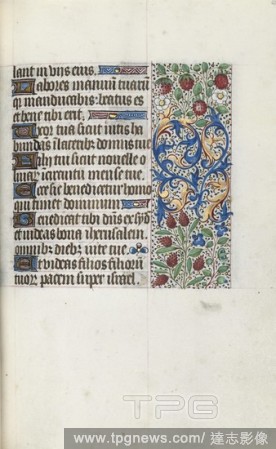 lant in viis eius.
Labores manuum tuarum
q̃ manducabis: beatus es
et bene tibi erit.
Uxor tua sicut vitis ha
bundans: in laterib; domus tue
Filij tui sicut novelle o
livarum: in circuitu mense tue.
Ecce sic benedicetur homo
qui timet dominum
Benedicat tibi dñs ex syõ
et videas bona iherusalem.
omnib; dieb; vite tue.
Et videas filios filiorũ
tuorum pacem super israel.
TPG
www.tpgnews.com/達志影像